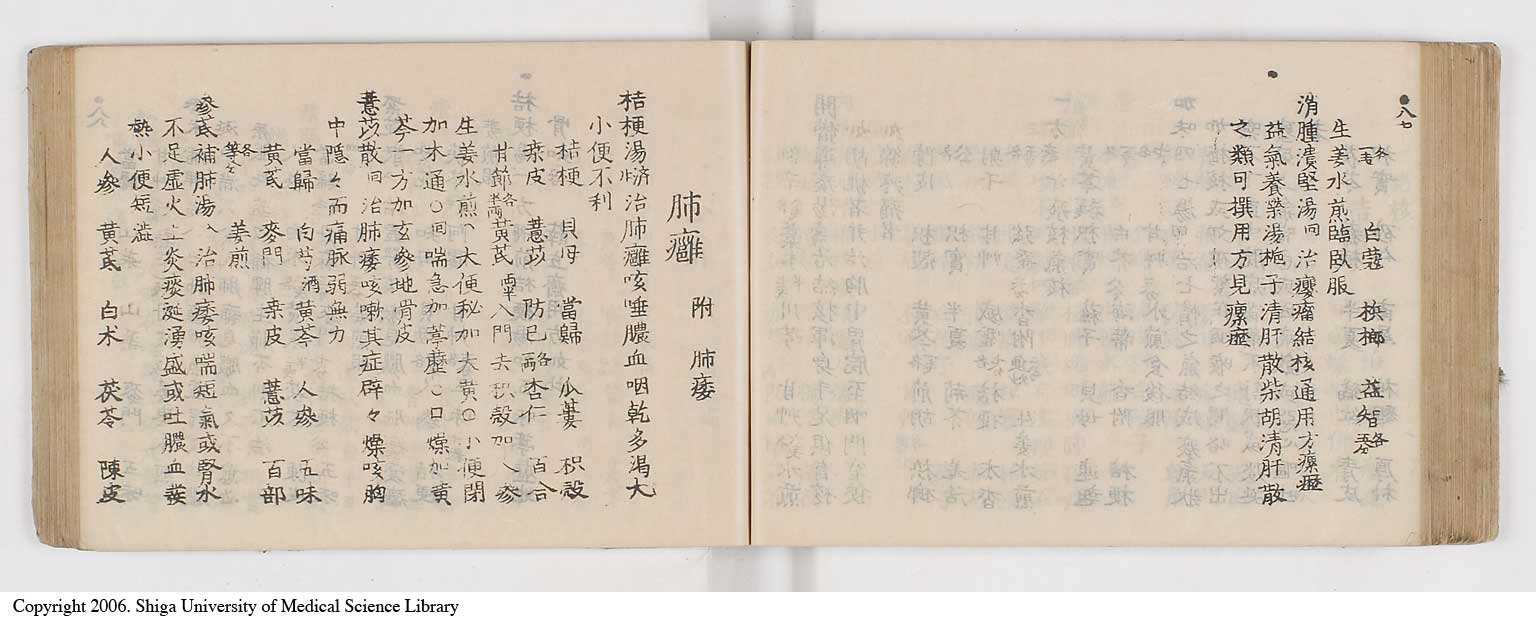 八七
各一匁 白蔻 梹榔 益智各五分
生姜水煎臨臥服
消腫潰堅湯 治癭瘤結核通用方瘰癧
益氣養榮湯梔子清肝散柴胡清肝散
之類可撰用方見瘰癧
肺癰 附 肺痿
桔梗湯 治肺癰咳唾膿血咽乾多渴大
小便不利
桔梗 貝母 當歸 瓜蔞 枳殼
桑皮 薏苡 防已各一両 杏仁 百合
甘節各半両 黄芪 入門去枳殼加人參
生姜水煎 大便秘加大黄〇小便閉
加木通〇喘急加葶藶〇口燥加黄
芩一方加玄參地骨皮
薏苡散 治肺痿咳嗽其症辟々燥咳胸
中隱々而痛脉弱無力
當歸 白芍酒 黄芩 人參 五味
黄芪 麥門 桑皮 薏苡 百部
各等分 姜煎
參芪補肺湯 治肺痿咳喘短氣或腎水
不足虚火上炎痰涎湧盛或吐膿血發
熱小便短澁
人參 黄芪 白术 茯苓 陳皮
Copyright 2006. Shiga University of Medical Science Library